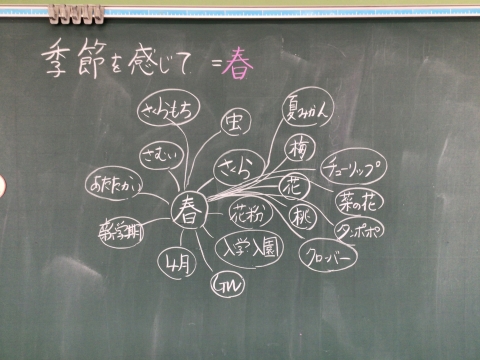 季節を感じて =春
さくらもち
虫
夏みかん
さむい
さくら
梅
チューリップ
あたたかい
春
花
菜の花
花粉
桃
タンポポ
新学期
入学・入園
クローバー
4月
GW